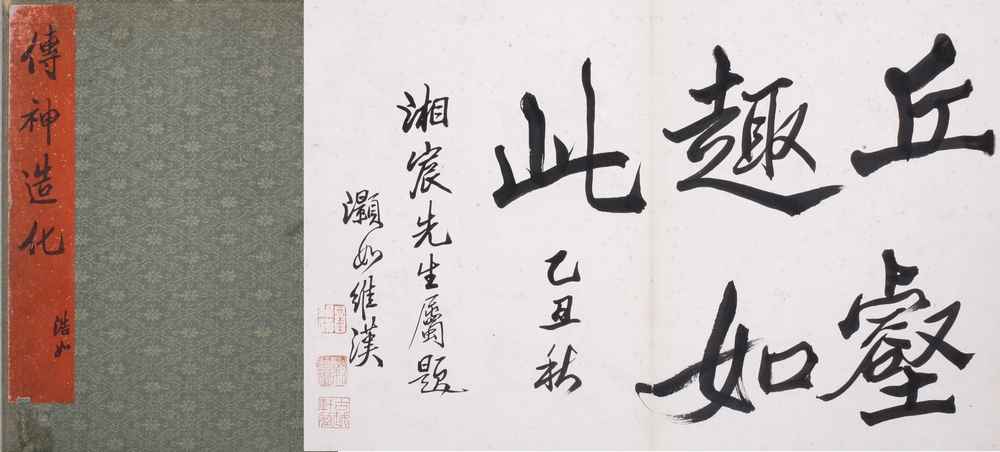 傳神造化
浩如
丘壑
趣如
此
乙丑秋
湘宸先生屬題
灝如維漢